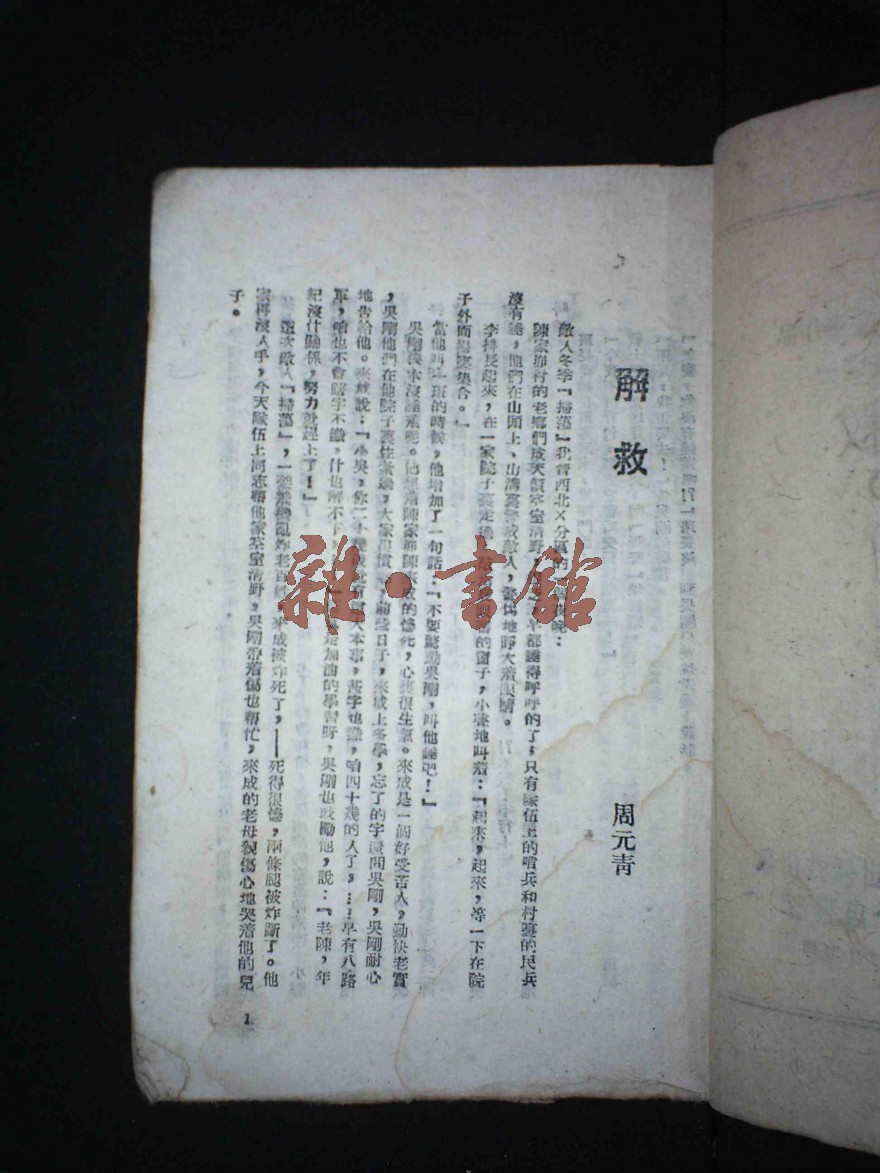 解救
周元青
敵人冬季『掃蕩』我晉西北×分區的
陳家崖村的老鄉們成天價空室清野，都睡得呼呼的了；只有隊伍上的哨兵和村裏的民兵
沒有睡，他們在山頭上、山溝裏警戒敵人，警惕地睜大着眼睛。
李排長起來，在一家院子裏走 的窗子，小聲地叫着：『起來，起來，等一下在院
子外面場裏集合。』
當他叫一班的時候，他增加了一句話：『不要驚動吳剛，叫他睡吧！』
吳剛根本沒睡着呢。他想着陳家崖陳來成的慘死，心裏很生氣。來成是一個好受苦人，勤快老實
，吳剛他們在他院子裏住 ，大家 慣 前些日子，來成上冬學，忘了的字還問吳剛，吳剛耐心
地告給他。來成說：『小吳，你二十幾歲 大本事，黃字也識，咱四十幾的人了，…早有八路
軍，咱也不會瞎字不識，什也解不下 是加油的學習呀，吳剛也鼓勵他，說：『老陳，年
紀沒什關係，努力就趕上了！』
這次敵人『掃蕩』， 飛機亂炸老百姓，來成被炸死了，——死得很慘，兩條腿被炸斷了。他
家再沒人手，今天隊伍上同志幫他家空室清野，吳剛帶着傷也幫忙，來成的老母親傷心地哭着他的兒
子。
1
雜·書館